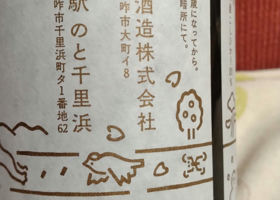 歳になってから。
暗所にて。
酒造株式会社
咋市大町イ8
駅のと千里浜
咋市千里浜町タ1番地62